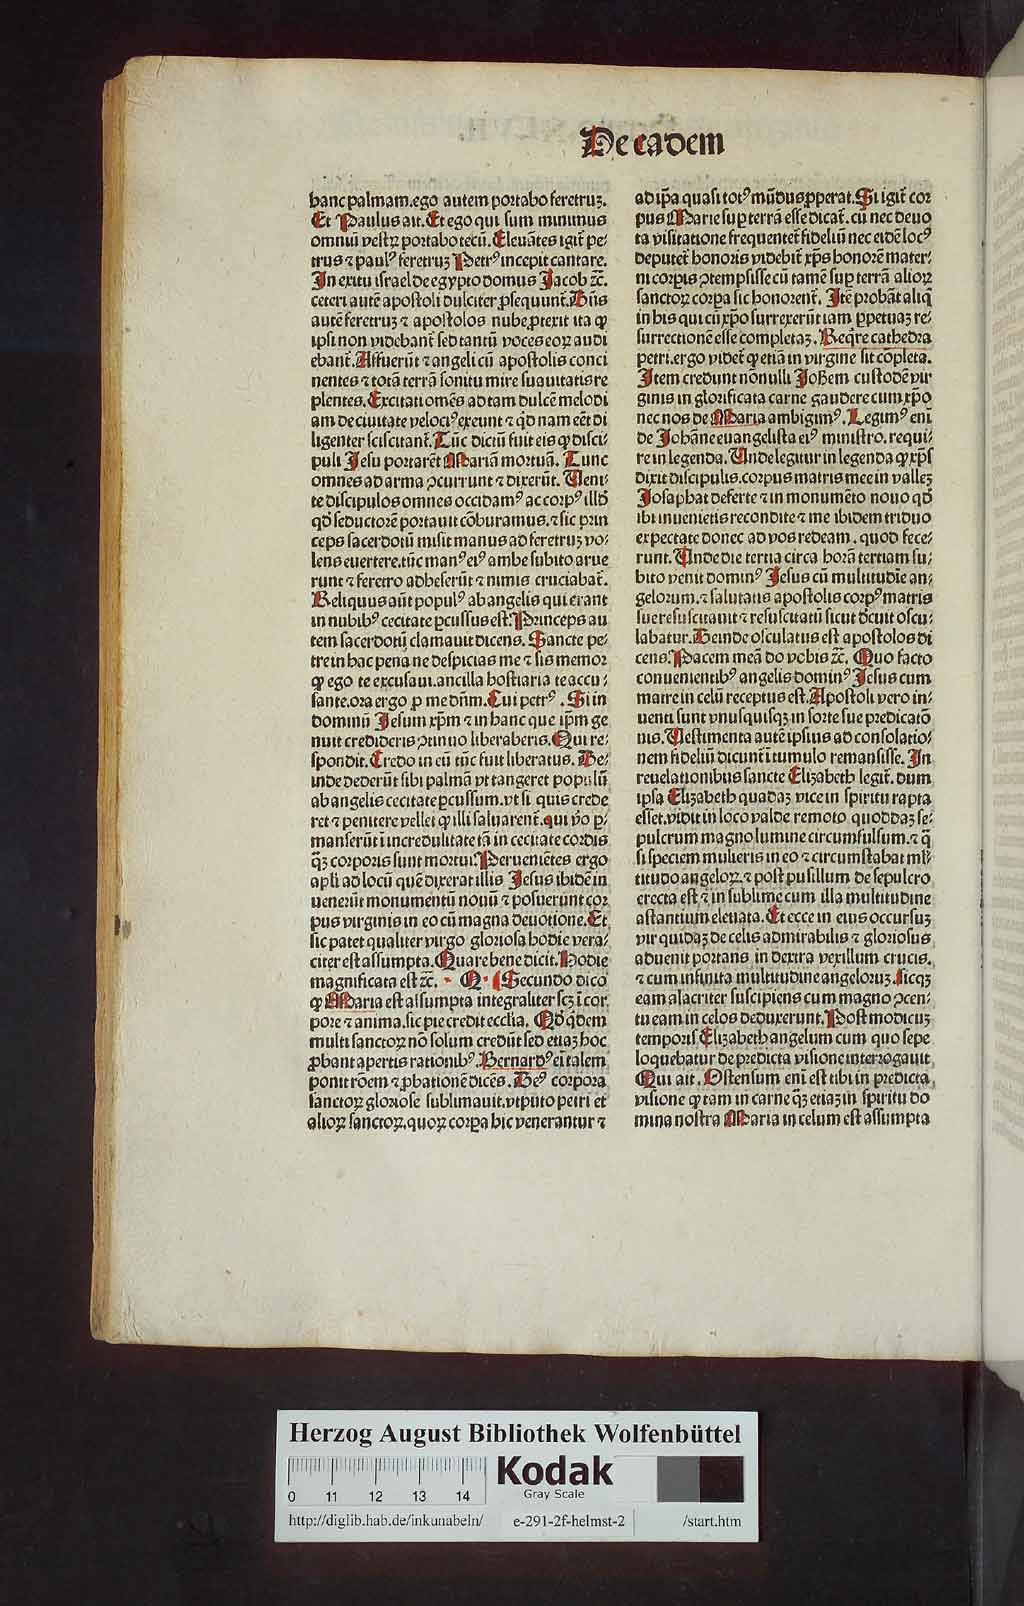 De eadem
hanc palmam.ego autem portabo feretruꝫ.
Et Paulus ait. Et ego qui sum minimus
omniū vestrꝝ portabo tecū. Eleuātes igit̄ pe⸗
trus ⁊ paulꝰ feretruꝫ Petrꝰ incepit cantare.
In exitu israel de egypto domus Jacob ⁊c̄.
ceteri autē apostoli dulciter ꝓsequunt̄. Dn̄s
autē feretruꝫ ⁊ apostolos nube ꝓtexit ita ꝙ
ipsi non videbant̄ sed tantū voces eoꝝ audi
ebant̄. Affuerūt ⁊ angeli cū apostolis conci
nentes ⁊ totā terrā sonitu mire suauitatis re
plentes. Excitati omēs ad tam dulcē melodi
am de ciuitate velociꝰ exeunt ⁊ qd̄ nam eēt di
ligenter sciscitant̄. Tūc dictū fuit eis ꝙ disci⸗
puli Jesu portarēt Mariā mortuā. Tunc
omnes ad arma ꝯcurrunt ⁊ dixerūt. Ueni⸗
te discipulos omnes occidamꝰ ac corpꝰ illd̄
qd̄ seductorē portauit cōburamus.⁊ sic prin
ceps sacerdotū misit manus ad feretruꝫ vo⸗
lens euertere.tūc manꝰ eiꝰ ambe subito arue
runt ⁊ feretro adheserūt ⁊ nimis cruciabat̄.
Reliquus aūt populꝰ ab angelis qui erant
in nubibꝰ cecitate ꝑcussus est. Princeps au
tem sacerdotū clamauit dicens. Sancte pe⸗
tre in hac pena ne despicias me ⁊ sis memor
ꝙ ego te excusaui.ancilla hostiaria te accu⸗
sante.ora ergo ꝓ me dn̄m. Cui petrꝰ. Si in
dominū Jesum xp̄m ⁊ in hanc que ip̄m ge
nuit credideris ꝯtinuo liberaberis. Qui re⸗
spondit. Credo in eū tūc fuit liberatus. De⸗
inde dederūt sibi palmā vt tangeret populū
ab angelis cecitate ꝑcussum.vt si quis crede
ret ⁊ penitere vellet ꝙ illi saluarent̄.qui v̄o ꝑ⸗
manserūt ī incredulitate tā in cecitate cordis
qꝫ corporis sunt mortui. Perueniētes ergo
apl̄i ad locū quē dixerat illis Jesus ibidē in
uenerūt monumentū nouū ⁊ posuerunt cor
pus virginis in eo cū magna deuotione. Et
sic patet qualiter virgo gloriosa hodie vera⸗
citer est assumpta. Quare bene dicit. Hodie
magnificata est ⁊c̄. Q. Secundo dico
ꝙ Maria est assumpta integraliter scꝫ ī cor
pore ⁊ anima.sic pie credit ecclīa. Qd̄ qͥdem
multi sanctoꝝ nō solum credūt sed etiaꝫ hoc
ꝓbant apertis rationibꝰ. Bernardꝰ ei talem
ponit rōem ⁊ ꝓbationē dicēs. Deꝰ corpora
sanctoꝝ gloriose sublimauit.vtputo petri et
alioꝝ sanctoꝝ.quoꝝ corꝑa hic venerantur ⁊
ad ip̄a quasi totꝰ mūdus ꝓperat. Si igit̄ cor
pus Marie suꝑ terrā esse dicat̄. cū nec deuo
ta visitatione frequentet̄ fideliū nec eidē locꝰ
deputet̄ honoris videbit̄ xp̄s honorē mater⸗
ni corꝑis ꝯtempsisse cū tamē suꝑ terrā alioꝝ
sanctoꝝ corꝑa sic honorent̄. Itē probāt aliq̄
in his qui cū xp̄o surrexerūt iam ꝑpetuaꝫ re⸗
surrectionē esse completaꝫ. Reqͥre cathedra
petri.ergo videt̄ ꝙ etiā in virgine sit cōpleta.
Item credunt nōnulli Joh̄em custodē vir
ginis in glorificata carne gaudere cum xp̄o
nec nos de Maria ambigimꝰ. Legimꝰ enī
de Johāne euangelista eiꝰ ministro. requi⸗
re in legenda. Unde legitur in legenda ꝙ xp̄s
dixit discipulis.corpus matris mee in valleꝫ
Josaphat deferte ⁊ in monumēto nouo qd̄
ibi inuenietis recondite ⁊ me ibidem triduo
expectate donec ad vos redeam. quod fece⸗
runt. Unde die tertia circa horā tertiam su⸗
bito venit dominꝰ Jesus cū multitudīe an⸗
gelorum.⁊ salutatis apostolis corpꝰ matris
sue resuscitauit ⁊ resuscitatū sicut decuit oscu⸗
labatur. Deinde osculatus est apostolos di
cens. Pacem meā do vobis ⁊c̄. Quo facto
conuenientibꝰ angelis dominꝰ Jesus cum
matre in celū receptus est. Apostoli vero in⸗
uenti sunt vnusquisqꝫ in sorte sue predicatō
nis. Uestimenta autē ipsius ad consolatio⸗
nem fideliū dicunt̄ ī tumulo remansisse. In
reuelationibus sancte Elizabeth legit̄. dum
ipsa Elizabeth quadaꝫ vice in spiritu rapta
esset.vidit in loco valde remoto quoddaꝫ se⸗
pulcrum magno lumine circumfulsum.⁊ q̄
si speciem mulieris in eo ⁊ circumstabat ml̄⸗
titudo angeloꝝ.⁊ post pusillum de sepulcro
erecta est ⁊ in sublime cum illa multitudine
astantium eleuata. Et ecce in eius occursuꝫ
vir quidaꝫ de celis admirabilis ⁊ gloriosus
aduenit portans in dextra vexillum crucis.
⁊ cum infinita multitudine angeloruꝫ.sicqꝫ
eam alacriter suscipiens cum magno ꝯcen⸗
tu eam in celos deduxerunt. Post modicuꝫ
temporis Elizabeth angelum cum quo sepe
loquebatur de predicta visione interrogauit
Qui ait. Ostensum enī est tibi in predicta
visione ꝙ tam in carne qꝫ etiaꝫ in spiritu do
mina nostra Maria in celum est assumpta
Herzog August Bibliothek Wolfenbüttel
Kodak
Gray Scale
0 11 12 13 14
http://diglib.hab.de/inkunabeln/ e-291-2f-helmst-2 /start.htm